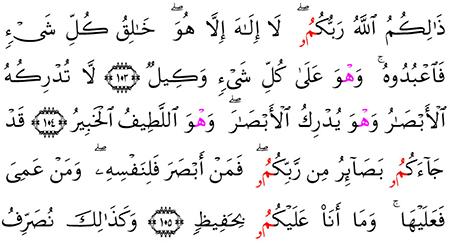 ذَٰلِكُمُ ٱللَّهُ رَبُّكُمُۥۖ لَآ إِلَٰهَ إِلَّا هُوَۖ خَٰلِقُ كُلِّ شَيْءٖ
فَٱعْبُدُوهُۚ وَهْوَ عَلَىٰ كُلِّ شَيْءٖ وَكِيلٞ ١٠٣ لَّا تُدْرِكُهُ
ٱلْأَبْصَٰرُ وَهْوَ يُدْرِكُ ٱلْأَبْصَٰرَۖ وَهْوَ ٱللَّطِيفُ ٱلْخَبِيرُ ١٠٤ قَدْ
جَآءَكُمُۥ بَصَآئِرُ مِن رَّبِّكُمُۥۖ فَمَنْ أَبْصَرَ فَلِنَفْسِهِۦۖ وَمَنْ عَمِىَ
فَعَلَيْهَاۚ وَمَآ أَنَا۠ عَلَيْكُمُۥ بِحَفِيظٖ ١٠٥ وَكَذَٰلِكَ نُصَرِّفُ